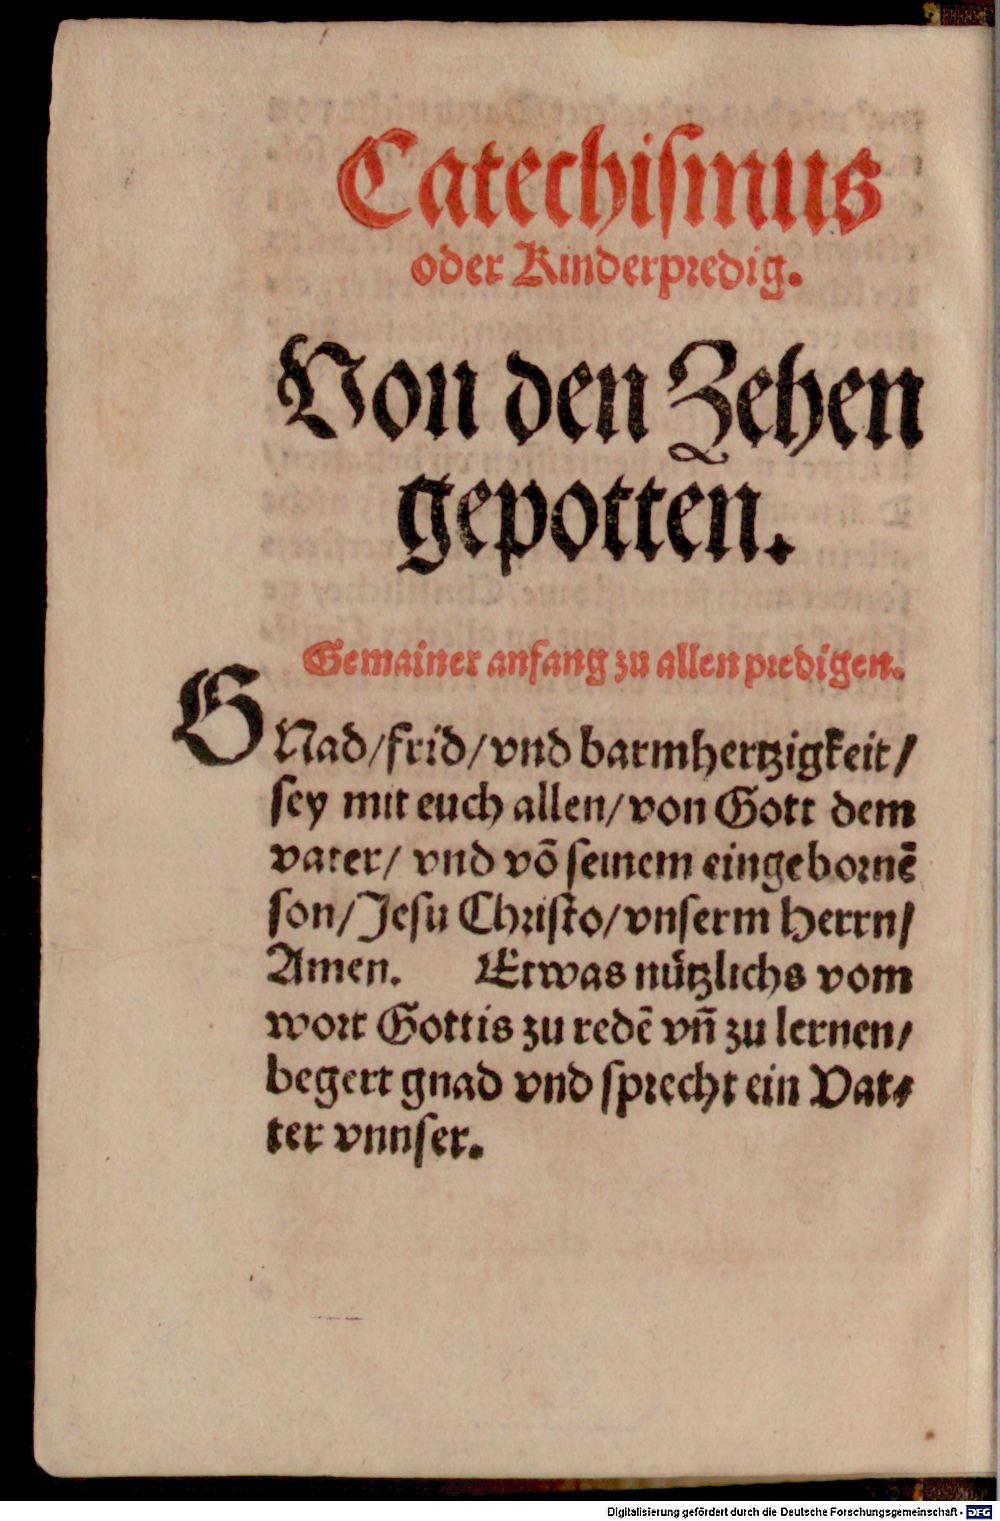 Catechismus
oder Kinderpredig.
Von den Zehen
gepotten.
Gemainer anfang zu allen predigen.
GNad/frid/vnd barmhertzigkeit/
sey mit euch allen/von Gott dem
vater/ vnd vō seinem eingebornē
son/Jesu Christo/vnserm Herrn/
Amen. Etwas nützlichs vom
wort Gottis zu redē vn̄ zu lernen/
begert gnad vnd sprecht ein Vat⸗
ter vnnser.
Digitalisierung gefördert durch die Deutsche Forschungsgemeinschaft - DFG